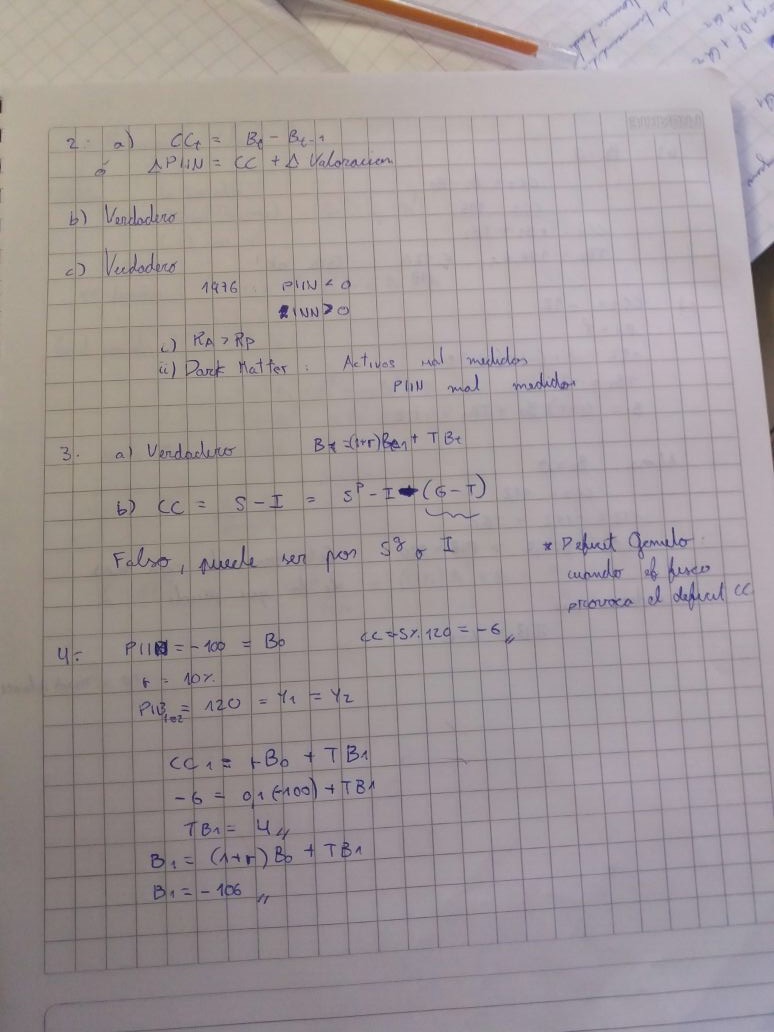 2. a) CCt = Bt - Bt-1
ó ΔPIIN = CC + Δ Valoracion
b) Verdadero
c) Verdadero
1976 : PIIN < 0
INN > 0
i) RA > RP
ii) Dark Matter : Activos mal medidos
PIIN mal medidos
3. a) Verdadero Bt = (1+r)Bt-1 + TBt
b) CC = S - I = S^P - I - (G - T)
Falso, puede ser por S^g o I
* Deficit Gemelo :
cuando df fisco
provoca el deficit CC
4. PIIN = -100 = B0 CC = 5%.120 = -6
r = 10%
PIB1=2 = 120 = Y1 = Y2
CC1 = rB0 + TB1
-6 = 0,1(-100) + TB1
TB1 = 4
B1 = (1+r)B0 + TB1
B1 = -106